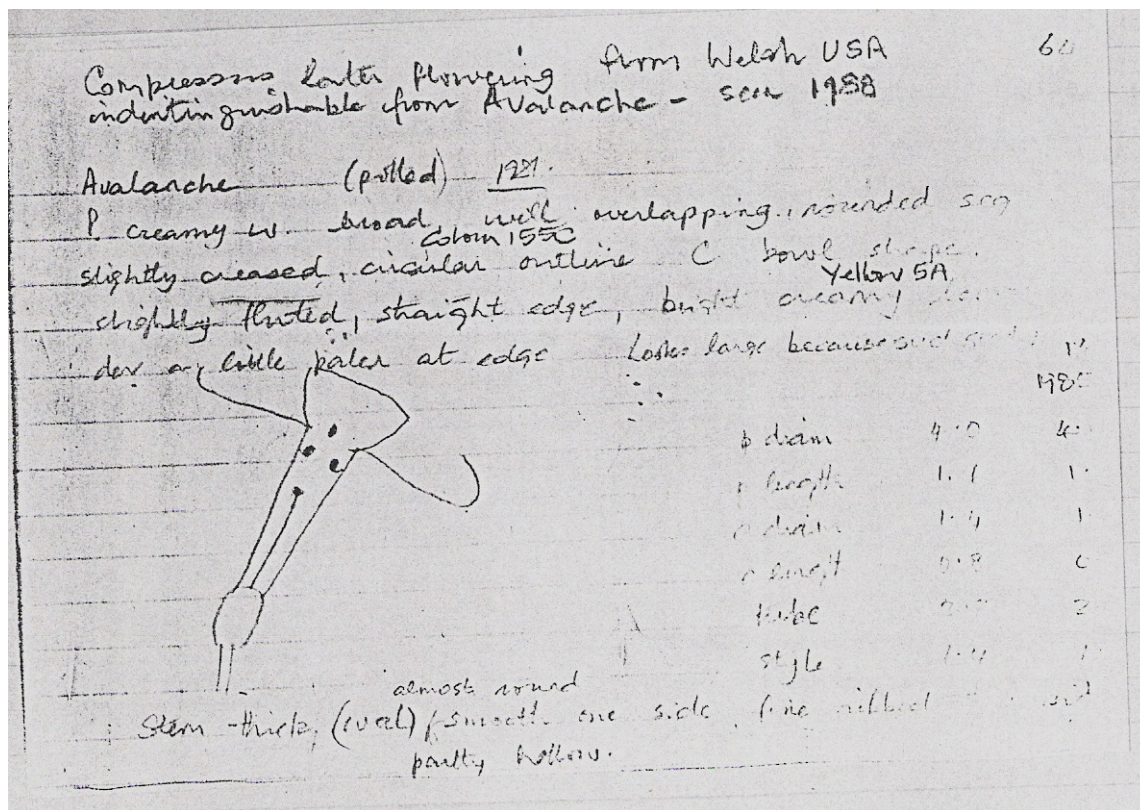 Compressus later flowering from Welsh USA
indistinguishable from Avalanche - seen 1988
Avalanche (potted) 1987.
P. creamy w. broad, well overlapping, rounded seg
Colour 155C
slightly creased, circular outline C bowl shape.
Yellow 5A
slightly fluted, straight edge, bright creamy
a little paler at edge Looks large because
p diam 4.0 4.
p length 1.1 1.
c diam 1.4 1
c length 0.8
tube 2
style 1.4 1
almost round
Stem - thick, (oval) / smooth one side, fine ribbed
partly hollow.